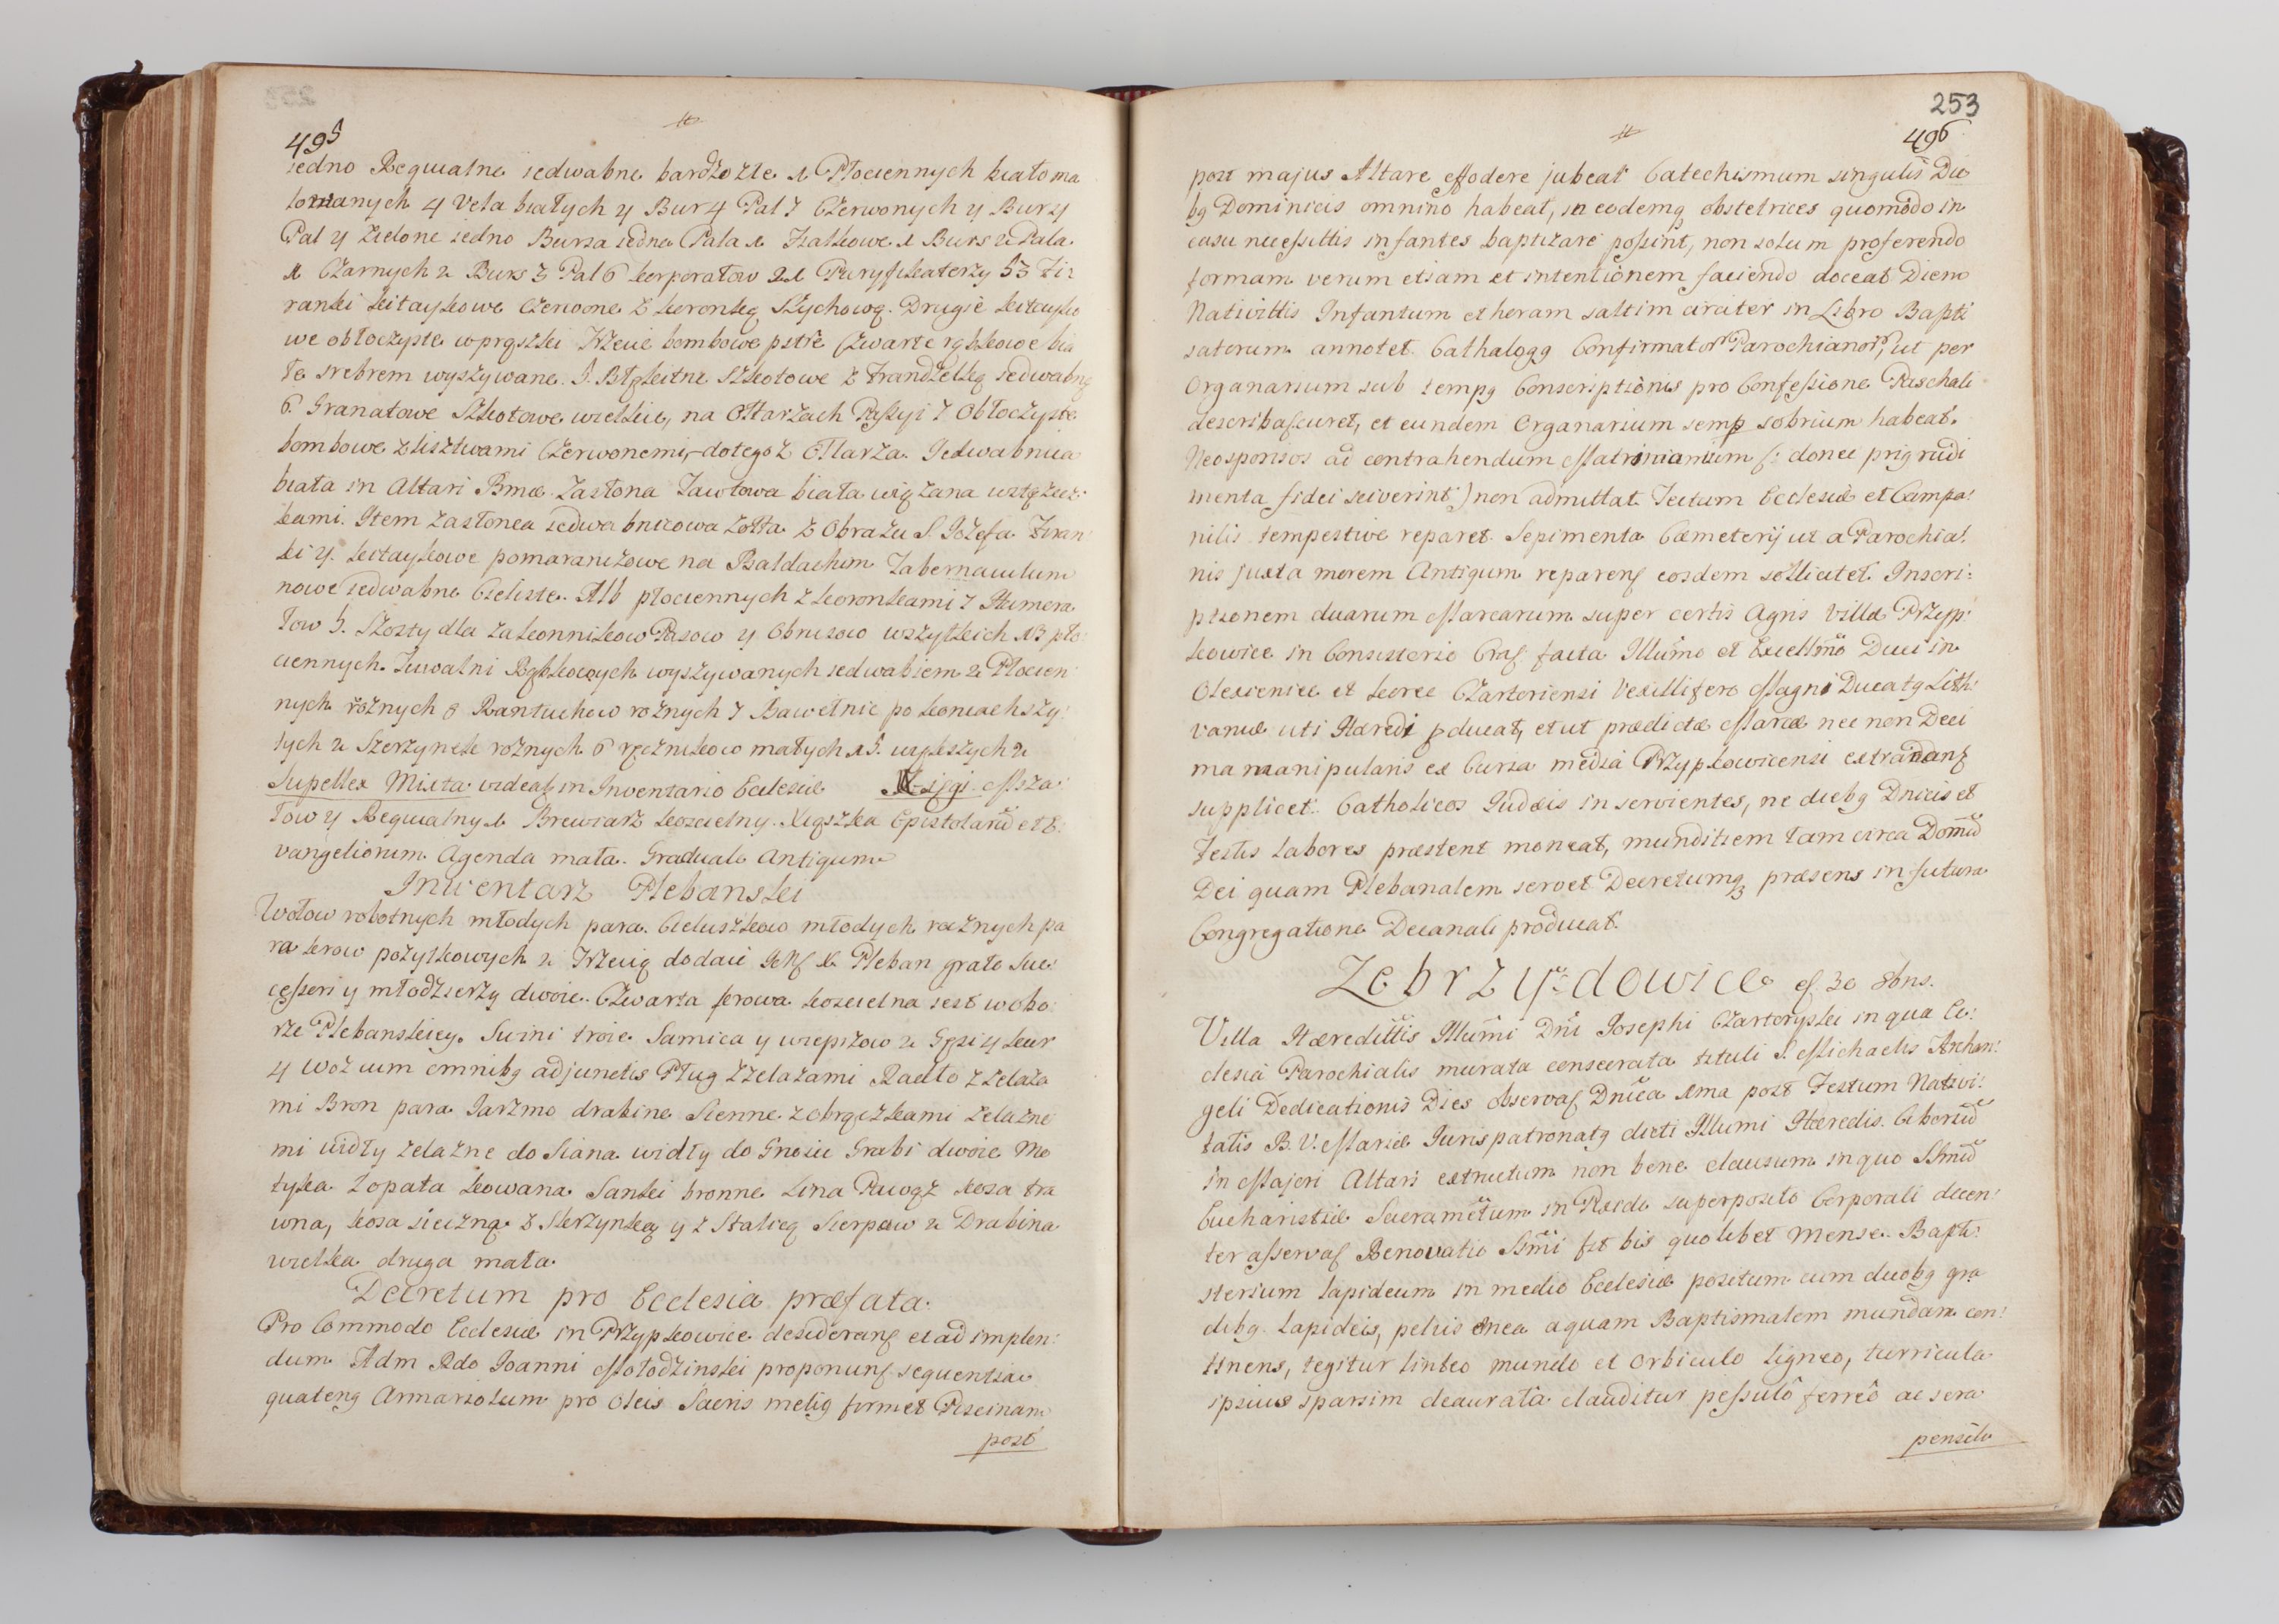 495
#
jedno Requialne jedwabne bardzo złe 1 Płociennych biało ma
lowanych 4 Vela białych y Bur 4 Pal 7 Czerwonych y Bur y
Pal y Zielone jedno Bursa jedna Pala 1 Fiałkowe 1 Burs 2 Pala
1 Czarnych 2 Burs 3 Pal 6 korporałow 21 Puryfikaterzy 53 Fi:
ranki kitaykowe Czerwone z koronką Szychową. Drugie kitayko
we obłoczyste w prąszki Trzecie bombowe pstre Czwarte rąbkowe bia
łe srebrem wyszywane. 5. Błękitne Szkotowe z frandzelką jedwabną
6. Granatowe Szkotowe wielkie, na Ołtarzach Passyi 7 Obłoczyste
bombowe z lisztwami Czerwonemi, do tegoż Ołtarza. Jedwabnica
biała in Altari Bmæ. Zasłona Zawłowa biała wiązana wstążecz:
kami. Item zasłonka jedwabnicowa żołta z Obrazu S. Jozefa Firan
ki y. kitaykowe pomaranczowe na Baldachim Tabernaculum
nowe jedwabne Cieliste. Alb płociennych z koronkami 7 Humera
łow 5. Szosty dla zakonnikow Pasow y Obrusow wszytkich 13 pło
ciennych. Tuwalni Rąbkowych wyszywanych jedwabiem 2 Płocien
nych rożnych 8 Rantuchow rożnych 7 Bawełnic po koncach szy:
tych 2 Szerzynek rożnych 6 ręcznikow małych 15. większych 2
Supellex Mixta videatur in Inventario Ecclesiæ Xsięgi Msza:
łow y Requialny 1 Brewiarz koscielny. Xiąszka Epistolarũ et E:
vangeliorum. Agenda mała. Graduale Antiquum
Inwentarz Plebanski
Wołow robotnych młodych para. Cieluszkow młodych rocznych pa
ra krow pożytkowych 2 Trzecią dodaie X. Pleban grato Suc:
cessori y młodzierzy dwoie. Czwarta krowa koscielna iest w obo:
rze Plebanskiey. Swini troie Samica y wieprzow 2 Gęsi y kur
4 Woz cum omnibq adjunctis Pług z żelazami Radło z żelaza
mi Bron para Jarzmo drabine Sienne z obrączkami żelazne
mi widły żelazne do Siana widły do Gnoiu Grabi dwoie Mo
tyka Łopata kowana Sanki bronne Lina Pawąz kosa tra
wna, kosa sieczna z Skrzynką y z Stalicą Sierpow 2 Drabina
wielka druga mała
Decretum pro Ecclesia præfata.
Pro Commodo Ecclesiæ in Przypkowice desiderans et ad implen:
dum Adm Rdo Joanni Młodzinski proponunt sequentia
quatenq Armariolum pro Oleis Sacris meliq firmet Piscinam
post
253
#
496
post majus Altare effodere jubeat Catechismum singulis Die
bq Dominicis omnino habeat, in eodemq obstetrices quomodo in
casu necessittis infantes baptizare possint, non solum proferendo
formam verum etiam et intentionem faciendo doceat Diem
Nativittis Infantum et horam saltim circiter in Libro Bapti
satorum annotet. Cathalogq Confirmator Parochianor, ut per
Organarium sub tempq Conscriptionis pro Confessione Paschali
describat curet, et eundem Organarium semp sobrium habeat.
Neosponsos ad contrahendum Matrimonium (: donec priq rudi
menta fidei sciverint :) non admittat Tectum Ecclesiæ et Campa:
nilis tempestive reparet. Sepimenta Cæmeterij ut a Parochia:
nis juxta morem Antiquum reparent eosdem sollicitet. Inscri:
ptionem duarum Marcarum super certis Agris Villæ Przyp:
kowice in Consistorio Crac facta Illumo et Excellmo Duci in
Olexience et korce Czartoriensi Vexillifero Magni Ducatq Lith:
vaniæ uti Hæredi pducat, et ut prædictæ Marcæ nec non Deci
ma manipularis ex Curia media Przypkowicensi extradant
supplicet. Catholicos Judæis inservientes, ne diebq Dnicis et
Festis labores præstent moneat, munditiem tam circa Domũ
Dei quam Plebanalem servet Decretumq præsens in futura
Congregatione Decanali producat.
Zebrzydowice 30 8bris.
Villa Hæredittis Illumi Dni Josephi Czartoryski in qua Ec:
clesia Parochialis murata consecrata tituli S. Michaelis Archan:
geli Dedicationis Dies observat Dnica 1ma post Festum Nativi:
tatis B. V. Mariæ Jurispatronatq dicti Illumi Hæredis. Ciboriũ
in Majori Altari extructum non bene clausum in quo SSmũ
Eucharistiæ Sacramẽtum in Pixide superposito Corporali decen:
ter asservat Renovatio SSmi fit bis quolibet mense. Bapti:
sterium lapideum in medio Ecclesiæ positum cum duobq gra
dibq. Lapideis, pelvis ænea aquam Baptismalem mundam con:
tinens, tegitur linteo mundo et Orbiculo ligneo, turricula
ipsius sparsim deaurata clauditur pessulô ferreô ac sera
pensili